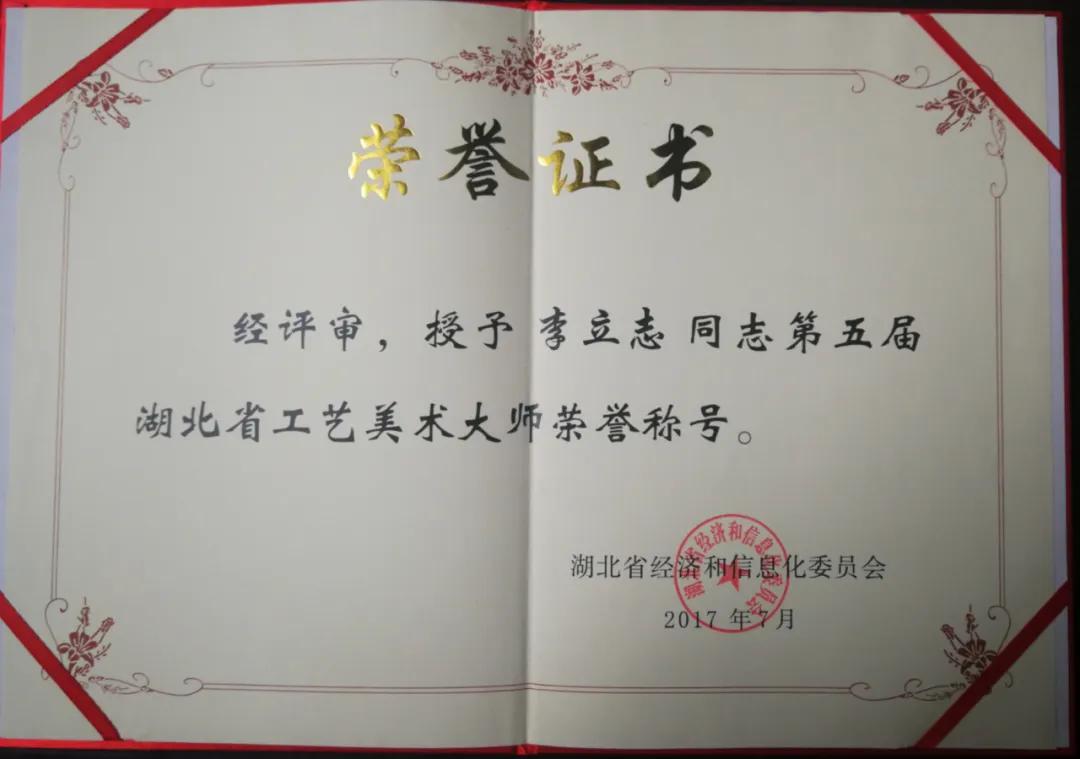 荣誉证书
经评审，授予 李立志 同志第五届
湖北省工艺美术大师荣誉称号。
湖北省经济和信息化委员会
2017 年7月
湖北省经济和信息化委员会